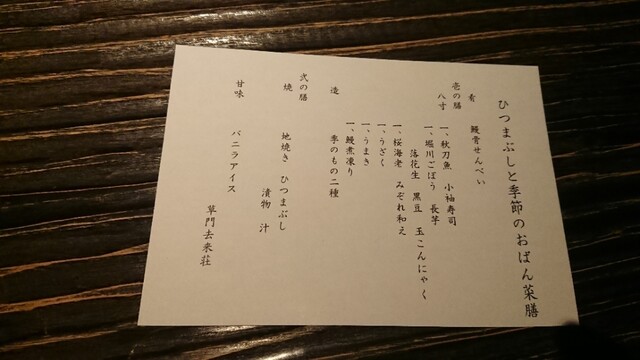 ひつまぶしと季節のおばん菜膳
肴 鰻骨せんべい
壱の膳
八寸 一、秋刀魚 小袖寿司
一、堀川ごぼう 長芋
落花生 黒豆 玉こんにゃく
一、桜海老 みぞれ和え
一、うざく
一、うまき
一、鰻煮凍り
造 季のもの二種
弐の膳
焼 地焼き ひつまぶし
漬物 汁
甘味 バニラアイス
草門去来荘